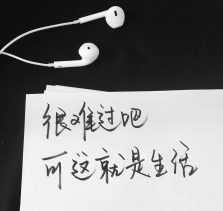 很难过吧
可这就是生活